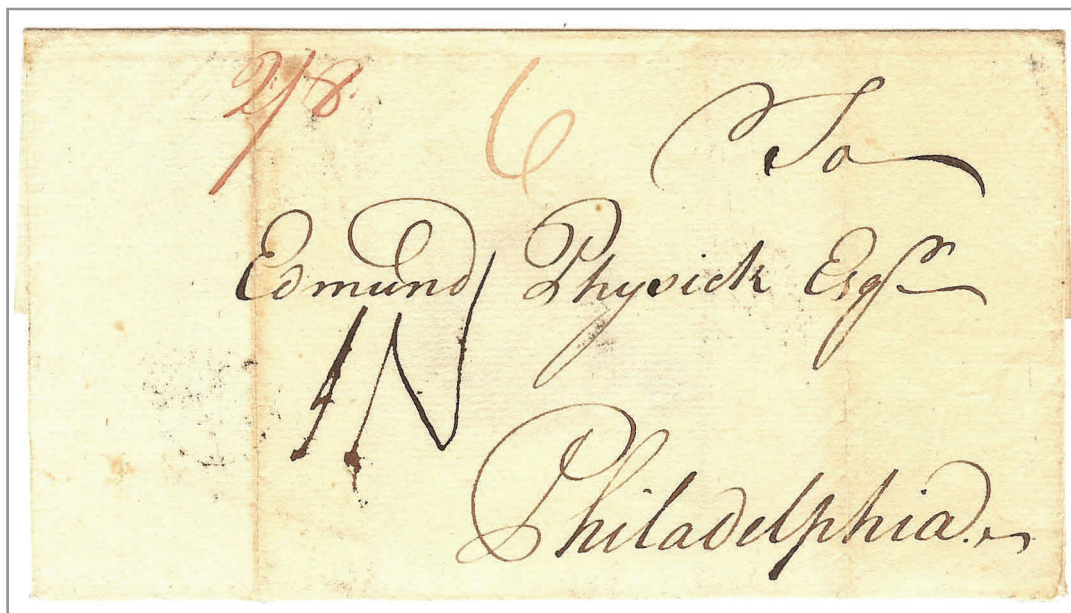 2/8. 6 To
Edmund Physick Esqr
1N
Philadelphia.